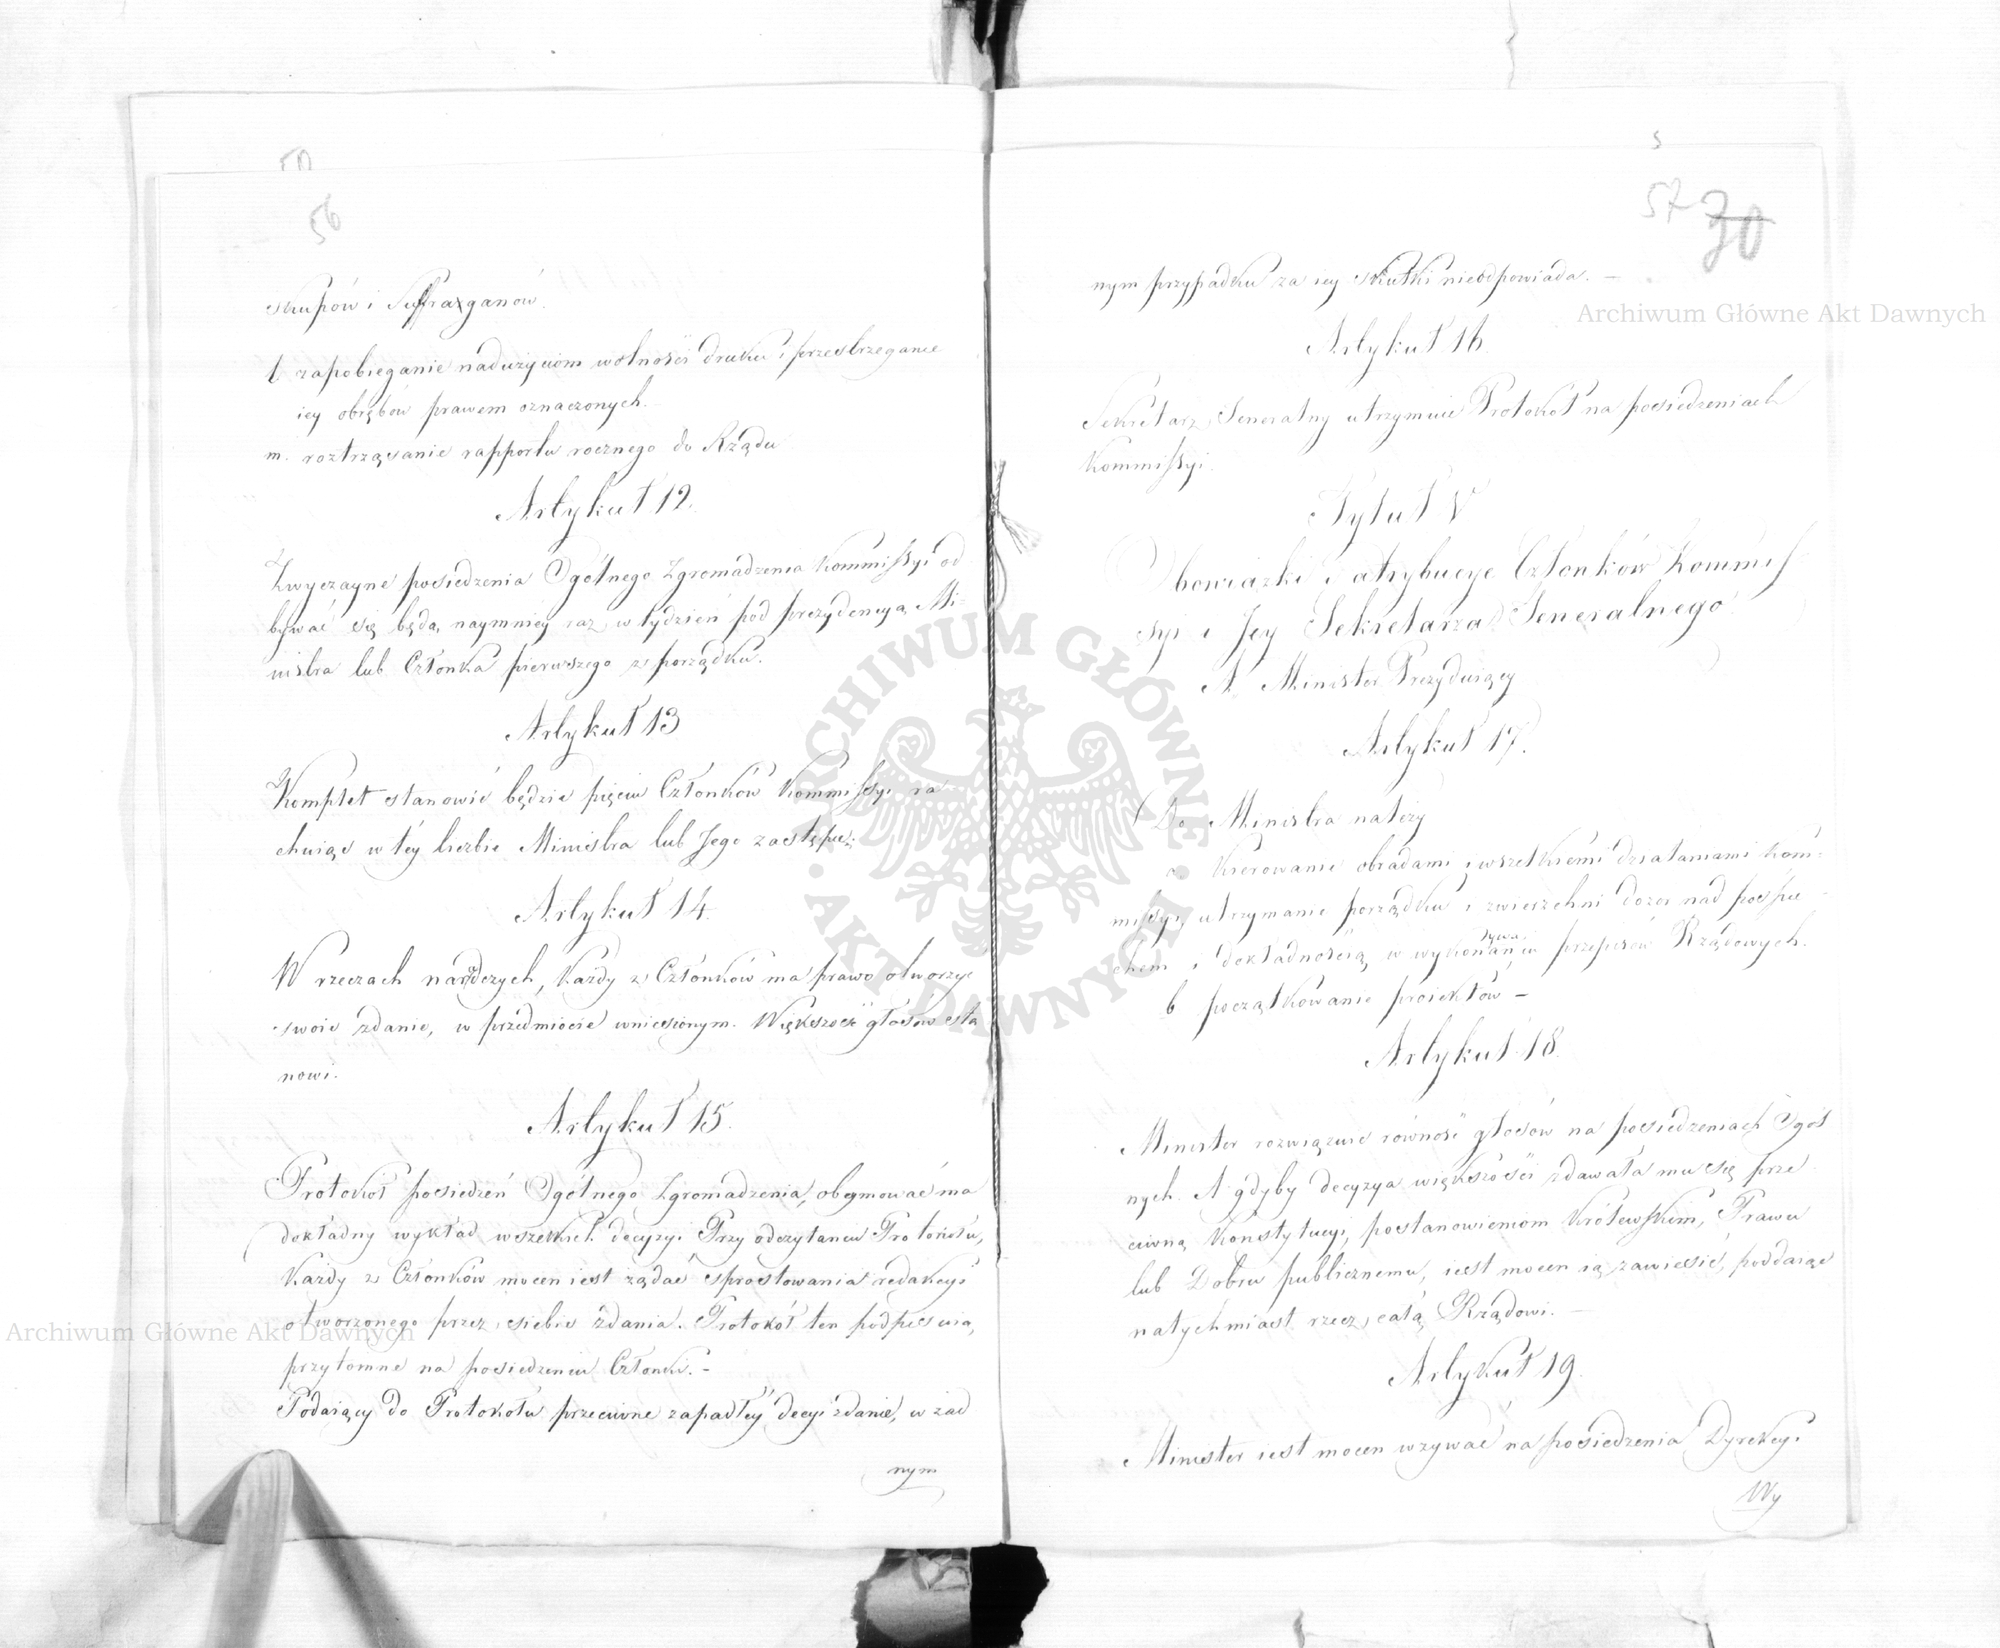 50
56
skupów i Suffraganów.
ł zapobieganie nadużyciom wolności druku i przestrzeganie
iey obrębów prawem oznaczonych.
m. roztrząsanie rapportu rocznego do Rządu
Artykuł 12.
Zwyczayne posiedzenia Ogólnego Zgromadzenia Kommissyi od
bywać się będą naymniey raz w tydzień pod prezydencyą Mi=
nistra lub Członka pierwszego z porządku.
Artykuł 13
Komplet stanowić będzie pięciu Członków Kommissyi ra
chuiąc w téy liczbie Ministra lub Jego zastępcę.
Artykuł 14.
W rzeczach naradczych, Każdy z Członków ma prawo otworzyć
swoie zdanie, w przedmiocie wniesionym. Większość głosów sta
nowi.
Artykuł 15.
Protokół posiedzeń Ogólnego Zgromadzenia, obeymować ma
dokładny wykład wszelkich decyzyi Przy odczytaniu Protokołu,
Każdy z Członków mocen iest żądać sprostowania redakcyi
otworzonego przez siebie zdania. Protokół ten podpisuią
przytomne na posiedzeniu Członki. –
Podaiący do Protokołu przeciwne zapadłéy decyi zdanie, w żad
nym
5
57 70
nym przypadku za iey skutki nieodpowiada. –
Artykuł 16.
Sekretarz Jeneralny utrzymuie Protokół na posiedzeniach
Kommissyi.
Tytuł V
Obowiązki i atrybucye Członków Kommis
syi i Jey Sekretarza Jeneralnego
A. Minister Prezyduiący
Artykuł 17.
Do Ministra należy
a. Kierowanie obradami i wszelkiemi działaniami Kom=
missyi, utrzymanie porządku i zwierzchni dozór nad pospie
chem i dokładnością w wykonywaniu przepisów Rządowych.
b początkowanie proiektów –
Artykuł 18.
Minister rozwiązuie równość głosów na posiedzeniach Ogól
nych. A gdyby decyzya większości zdawała mu się prze
ciwną Konstytucyi, postanowieniom Królewskim, Prawu
lub Dobru publicznemu, iest mocen ią zawiesić, poddaiąc
natychmiast rzecz całą Rządowi. –
Artykuł 19.
Minister iest mocen wzywać na posiedzenia Dyrekcyi
Wy
Archiwum Główne Akt Dawnych
Archiwum Główne Akt Dawnych
ARCHIWUM GŁÓWNE
AKT DAWNYCH